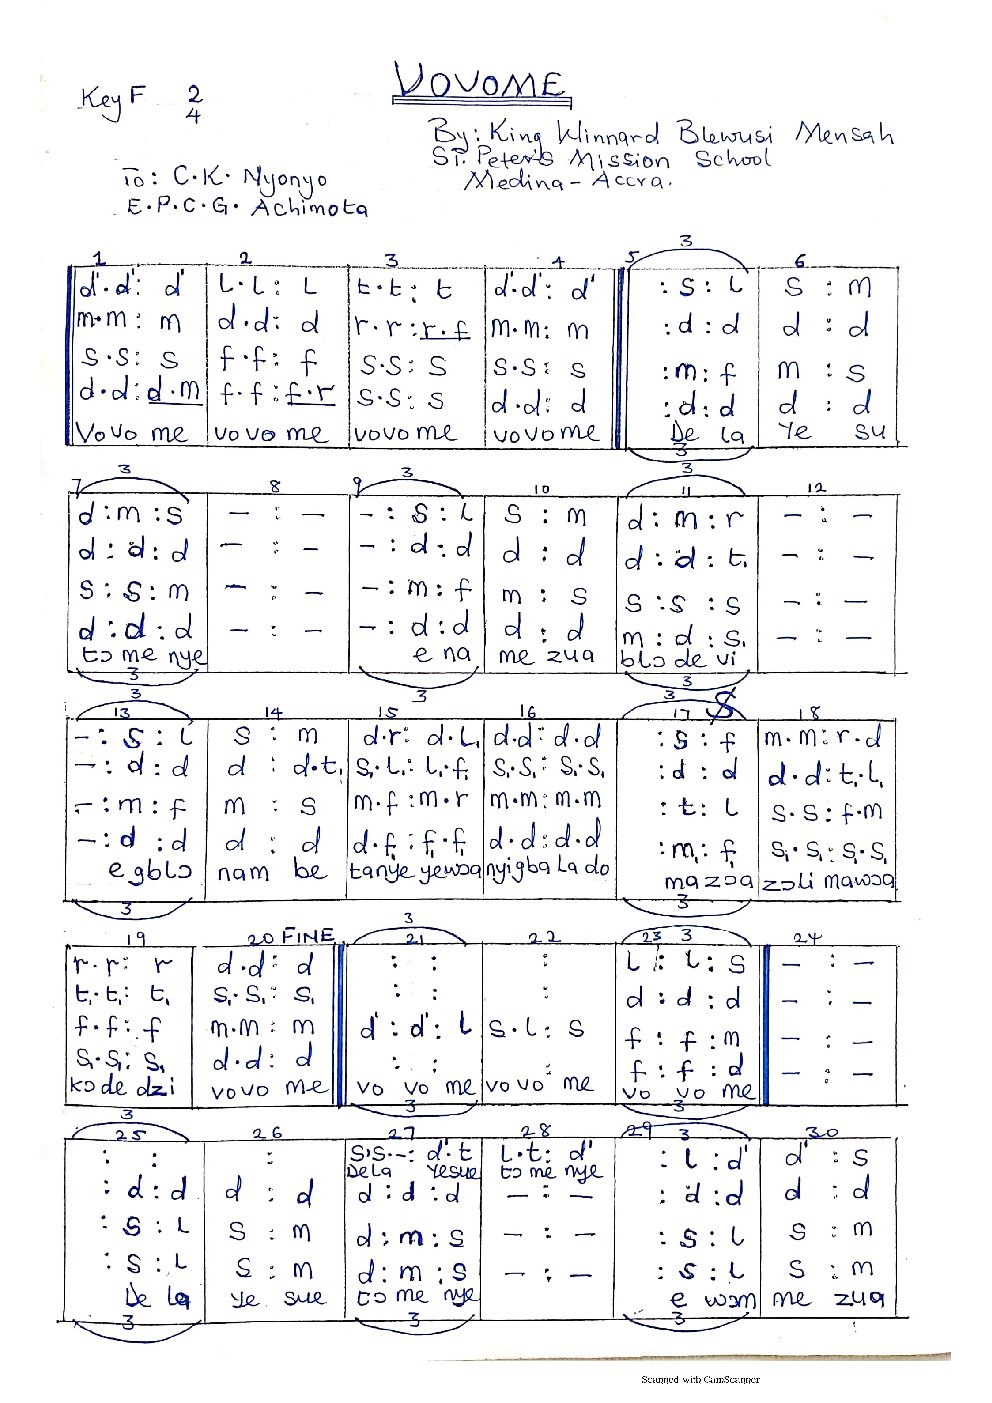 VOVOME
Key F 2/4
By: King Winnard Blewusi Mensah
St. Peter's Mission School
Medina - Accra.
To: C.K. Nyonyo
E.P.C.G. Achimota
1 2 3 4 5 3 6
d'.d': d' | l.l: l | t.t: t | d'.d': d' | : s : l | s : m
m.m: m | d.d: d | r.r: r.f | m.m: m | : d : d | d : d
s.s: s | f.f: f | s.s: s | s.s: s | : m : f | m : s
d.d: d.m | f.f: f.r | s.s: s | d.d: d | : d : d | d : d
Vovo me | vovo me | vovo me | vovome | De la | Ye su
3
3 3 3
7 8 9 10 11 12
d : m : s | – : – | – : s : l | s : m | d : m : r | – : –
d : d : d | – : – | – : d : d | d : d | d : d : t, | – : –
s : s : m | – : – | – : m : f | m : s | s : s : s | – : –
d : d : d | – : – | – : d : d | d : d | m : d : s, | – : –
tɔ me nye | e na | me zua | blɔ de vi
3 3 3
3 3
13 14 15 16 17 S 18
– : s : l | s : m | d.r: d.l, | d.d: d.d | : s : f | m.m: r.d
– : d : d | d : d.t, | s,.l,: l,.f, | s,.s,: s,.s, | : d : d | d.d: t,.l,
– : m : f | m : s | m.f: m.r | m.m: m.m | : t : l | s.s: f.m
– : d : d | d : d | d.f,: f,.f, | d.d: d.d | : m, : f, | s,.s,: s,.s,
e gblɔ | nam be | tanye yewɔa | nyigba la do | ma zɔa | zɔli mawɔa
3 3
19 20 FINE 3 21 22 23 3 24
r.r: r | d.d: d | : : | : | l : l : s | – : –
t,.t,: t, | s,.s,: s, | : : | : | d : d : d | – : –
f.f: f | m.m: m | d' : d' : l | s.l: s | f : f : m | – : –
s,.s,: s, | d.d: d | : : | : | f : f : d | – : –
kɔ de dzi | vovo me | vo vo me | vovo me | vo vo me
3 3
3
25 26 27 28 29 3 30
: : | : | s.s.-: d'.t | l.t: d' | : l : d' | d' : s
De la Yesue | tɔ me nye
: d : d | d : d | d : d : d | – : – | : d : d | d : d
: s : l | s : m | d : m : s | – : – | : s : l | s : m
: s : l | s : m | d : m : s | – : – | : s : l | s : m
De la | Ye sue | tɔ me nye | e wɔm | me zua
3 3 3
Scanned with CamScanner